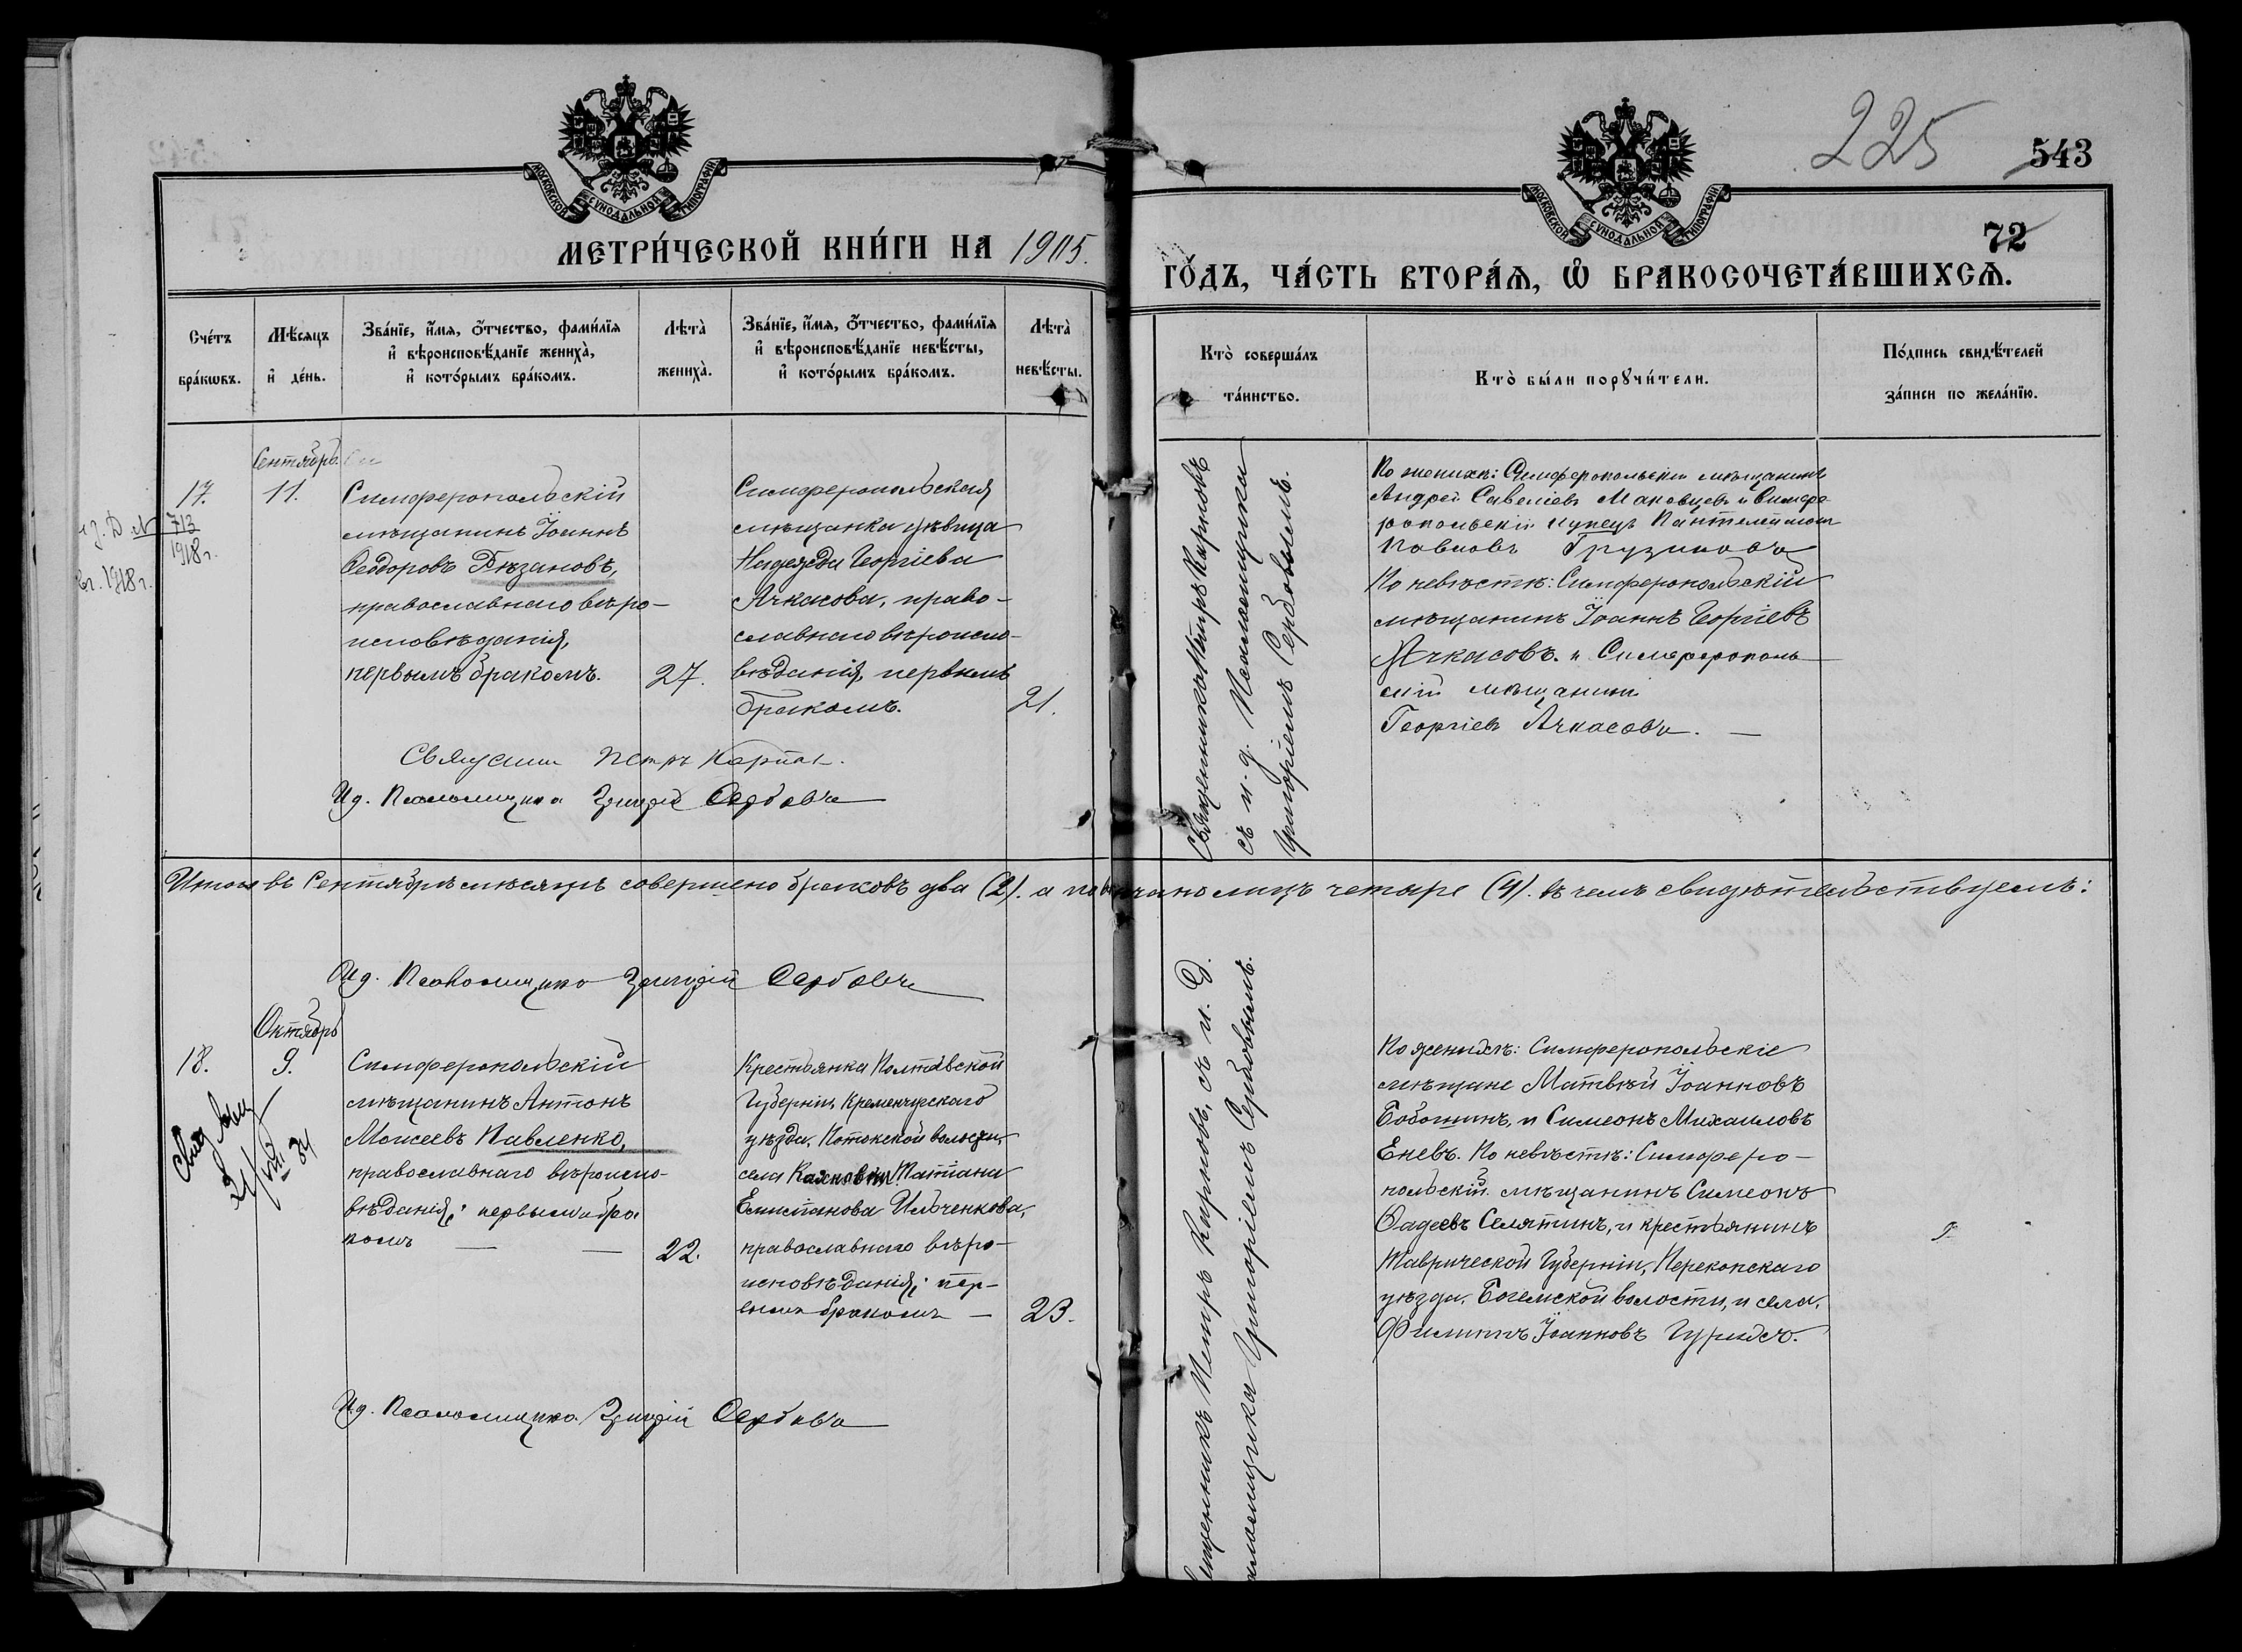 225
543
72
МОСКОВСКОЙ СѴНОДАЛЬНОЙ ТИПОГРАФІИ
МОСКОВСКОЙ СѴНОДАЛЬНОЙ ТИПОГРАФІИ
МЕТРИ́ЧЕСКОЙ КНИ́ГИ НА 1905.
ГО́ДЪ, ЧА́СТЬ ВТОРА́Ѧ, Ѽ БРАКОСОЧЕТА́ВШИХСѦ.
Сче́тъ
бра́кѡвъ.
Мѣ́сяцъ
и҆ де́нь.
Зва́нїе, и҆́мя, ѻ҆́тчество, фами́лїя
и҆ вѣроисповѣ́данїе жениха̀,
и҆ кото́рымъ бра́комъ.
Лѣта̀
жениха̀.
Зва́нїе, и҆́мя, ѻ҆́тчество, фами́лїя
и҆ вѣроисповѣ́данїе невѣ́сты,
и҆ кото́рымъ бра́комъ.
Лѣта̀
невѣ́сты.
Кто̀ соверша́лъ
та́инство.
Кто̀ бы́ли порꙋчи́тели.
По́дпись свидѣ́телей
за́писи по жела́нїю.
Сентябрь
17.
11.
713
1918 г.
1918 г.
Симферопольскій
мѣщанинъ Іоаннъ
Ѳеодоровъ
православнаго вѣро-
исповѣданія,
первымъ бракомъ.
27.
Симферопольская
мѣщанка дѣвица
Надежда Георгіева
Ачкасова, право-
славнаго вѣроиспо-
вѣданія, первымъ
бракомъ.
21.
Священникъ Петръ Карповъ
съ и. д. Псаломщика
Григоріемъ Сербовымъ.
По женихѣ: Симферопольскій мѣщанинъ
Андрей Савеліевъ и Симфе-
ропольскій купецъ Пантелеймонъ
Павловъ Грузиновъ
По невѣстѣ: Симферопольскій
мѣщанинъ Іоаннъ Георгіевъ
Ачкасовъ. и Симферополь-
скій мѣщанинъ
Георгіевъ Ачкасовъ.
Священникъ Петръ Карповъ.
И. д. Псаломщика Григорій Сербовъ
Итого въ Сентябрѣ мѣсяцѣ совершено браковъ два (2). а повѣнчано лицъ четыре (4). въ чемъ свидѣтельствуемъ:
И. д. Псаломщика Григорій Сербовъ
Октябрь
18.
9.
Симферопольскій
мѣщанинъ Антонъ
Моисеевъ Павленко,
православнаго вѣроиспо-
вѣданія; первымъ бра-
комъ
22.
Крестьянка Полтавской
Губерніи, Кременчугскаго
уѣзда, Потокской волости,
села Татіана
Епистанова Ильченкова,
православнаго вѣро-
исповѣданія; пер-
вымъ бракомъ
23.
Священникъ Петръ Карповъ, съ и. д.
псаломщика Григоріемъ Сербовымъ.
По женихѣ: Симферопольскіе
мѣщане Матвѣй Іоанновъ
Бобошинъ, и Симеонъ Михаиловъ
Еневъ. По невѣстѣ: Симферо-
польскій мѣщанинъ Симеонъ
Ѳадеевъ Селятинъ, и крестьянинъ
Таврической Губерніи, Перекопскаго
уѣзда, Богемской волости, и села,
Филиппъ Іоанновъ
И. д. Псаломщика Григорій Сербовъ